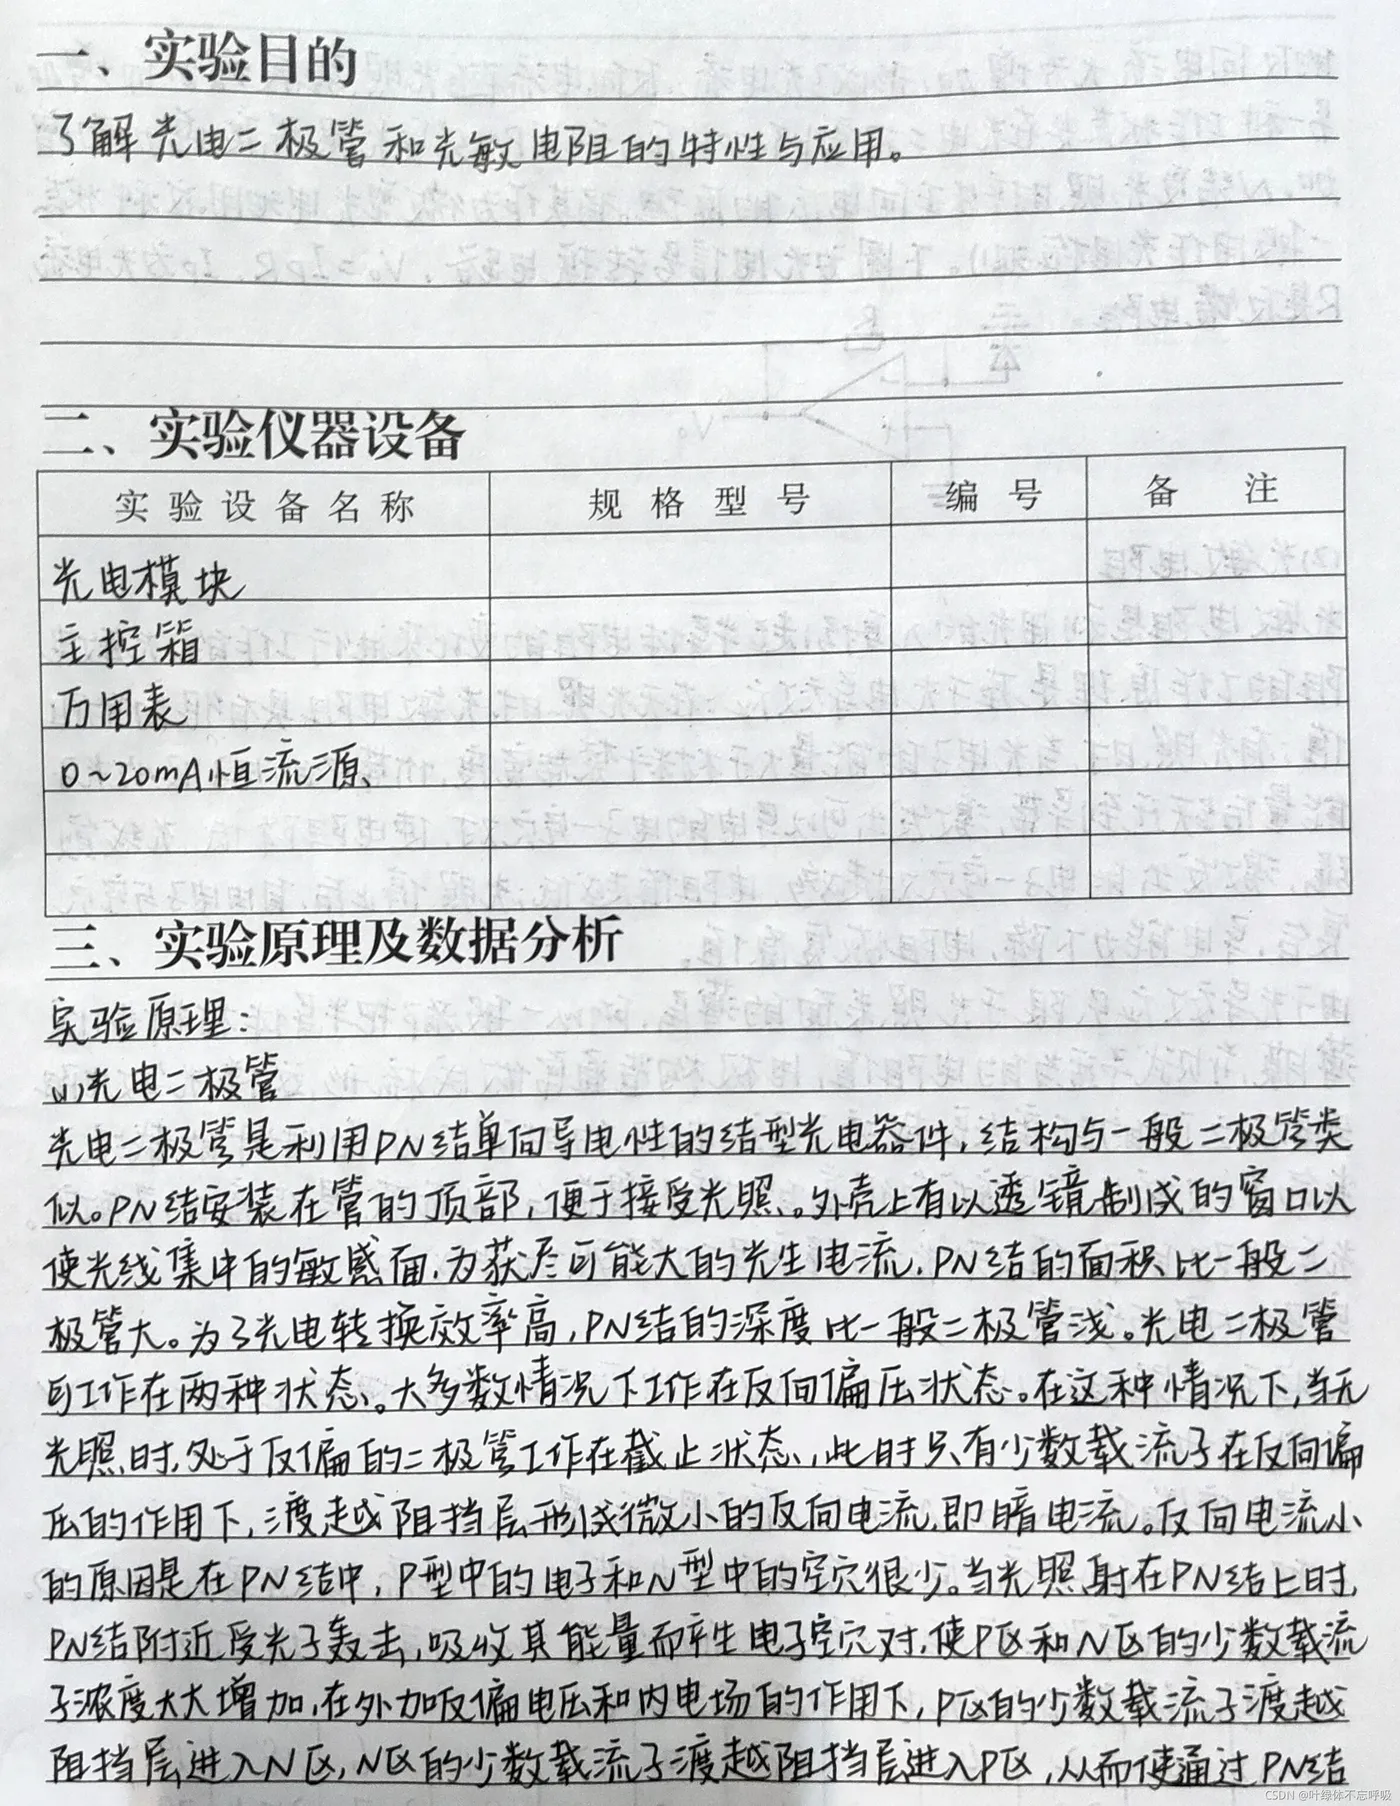 一、实验目的
了解光电二极管和光敏电阻的特性与应用。
二、实验仪器设备
实验设备名称 规格型号 编号 备注
光电模块
主控箱
万用表
0~20mA恒流源
三、实验原理及数据分析
实验原理:
(1)光电二极管
光电二极管是利用PN结单向导电性的结型光电器件,结构与一般二极管类
似。PN结安装在管的顶部,便于接受光照。外壳上有以透镜制成的窗口以
使光线集中的敏感面,为获尽可能大的光生电流,PN结的面积比一般二
极管大。为了光电转换效率高,PN结的深度比一般二极管浅。光电二极管
可工作在两种状态。大多数情况下工作在反向偏压状态。在这种情况下,当无
光照时,处于反偏的二极管工作在截止状态,此时只有少数载流子在反向偏
压的作用下,渡越阻挡层形成微小的反向电流,即暗电流。反向电流小
的原因是在PN结中,P型中的电子和N型中的空穴很少。当光照射在PN结上时,
PN结附近受光子轰击,吸收其能量而产生电子空穴对,使P区和N区的少数载流
子浓度大大增加,在外加反偏电压和内电场的作用下,P区的少数载流子渡越
阻挡层进入N区,N区的少数载流子渡越阻挡层进入P区,从而使通过PN结
CSDN @叶绿体不忘呼吸